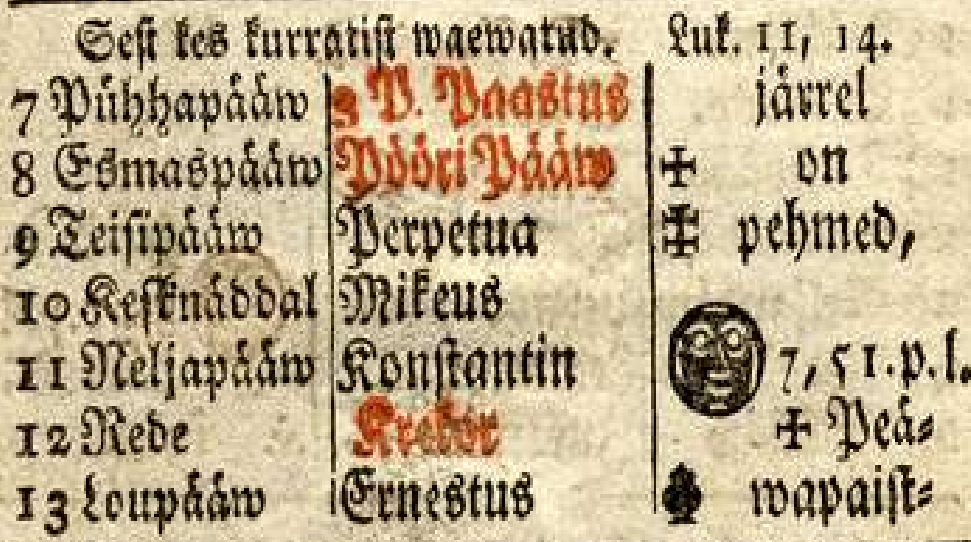 Sest kes kurratist waewatud. Luk. 11, 14.
7 Pühhapääw 3 P. Paastus järrel
8 Esmaspääw Pööri Pääw ✠ on
9 Teisipääw Perpetua ✠ pehmed,
10 Kesknäddal Mikeus
11 Neljapääw Konstantin 7, 51. p. l.
12 Rede Krekor ✠ Peä⸗
13 Loupääw Ernestus ♣ wapaist⸗